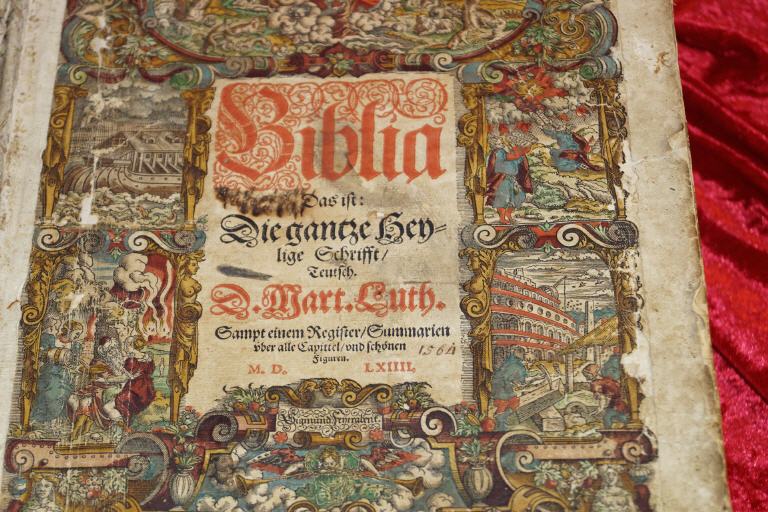 Biblia
Das ist:
Die gantze Hey⸗
lige Schrifft/
Teutsch.
D. Mart. Luth.
Sampt einem Register/Summarien
vber alle Capittel/vnd schönen
Figuren. 1564
M. D. LXIIII.
Sigmund Feyrabent.